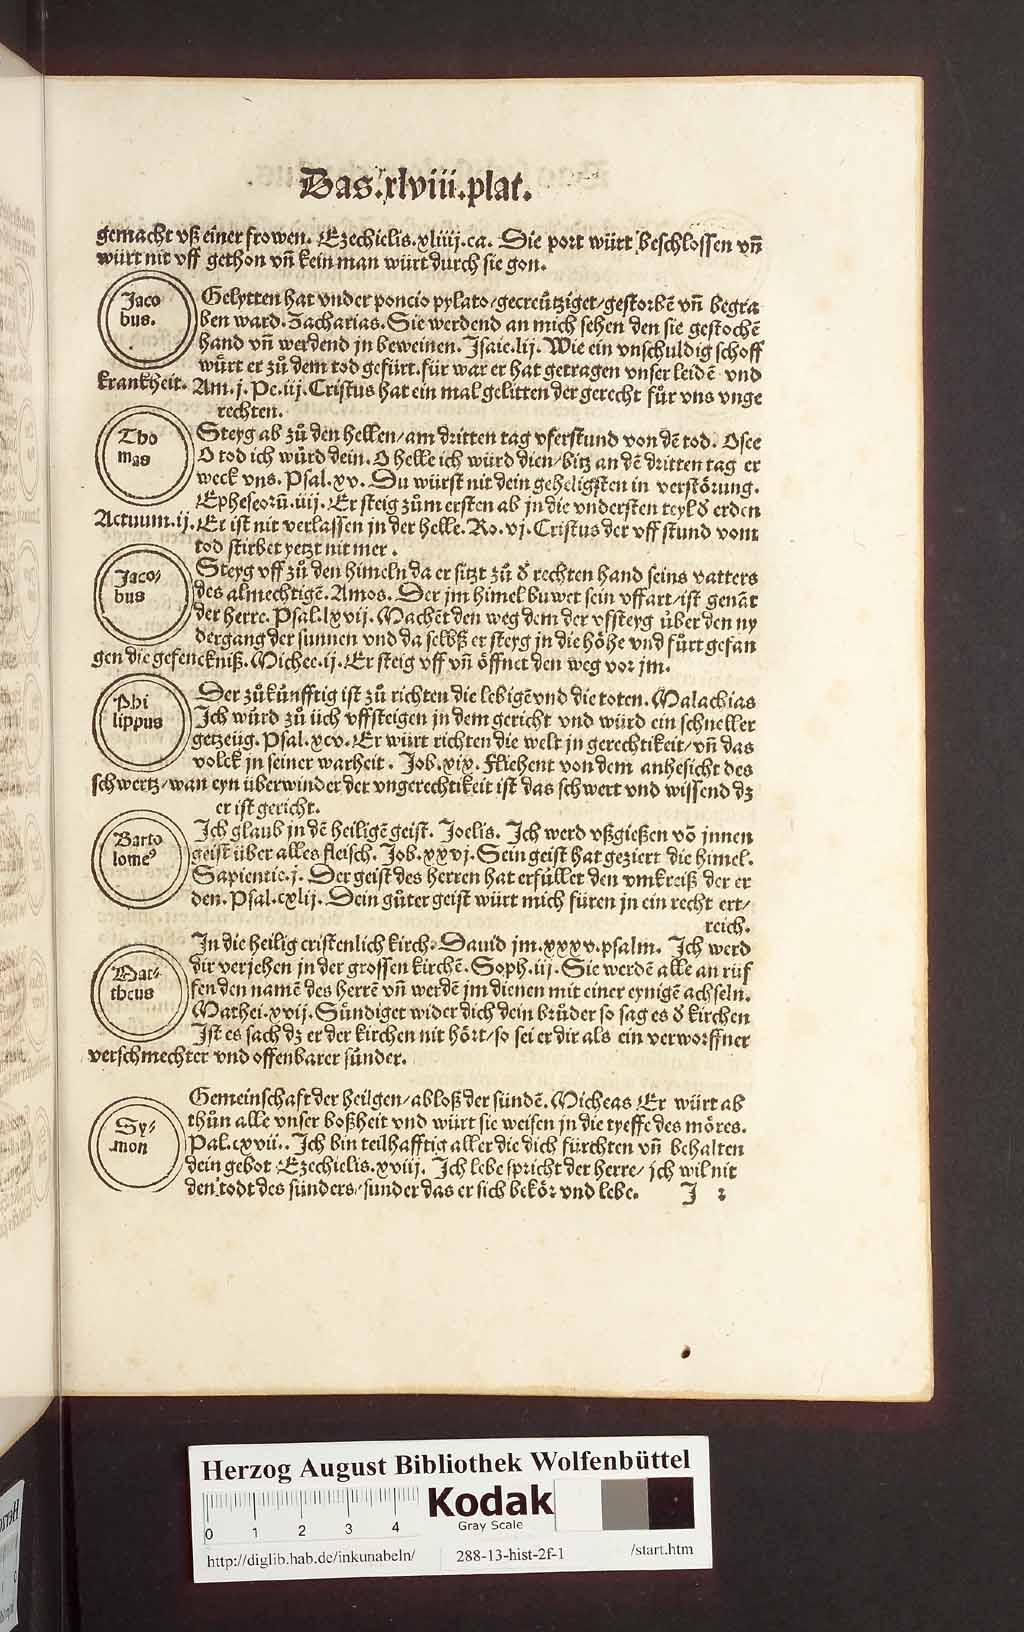 Das.xlviii.plat.
gemacht vß einer frowen. Ezechielis.xliiij.ca. Die port würt beschlossen vñ
würt nit vff gethon vñ kein man würt durch sie gon.
Jaco
bus.
Gelytten hat vnder poncio pylato/gecreütziget/gestorbẽ vñ begra
ben ward. Zacharias. Sie werdend an mich sehen den sie gestochẽ
hand vñ werdend jn beweinen. Jsaie.lij. Wie ein vnschuldig schoff
wuͤrt er zuͦ dem tod gefürt. für war er hat getragen vnser leidẽ vnd
krankheit. Am.j. Pe.iij. Cristus hat ein mal gelitten der gerecht fuͤr vns vnge
rechten.
Tho
mas
Steyg ab zuͦ den hellen/am dritten tag vferstund von dẽ tod. Osee
O tod ich wuͤrd dein. O helle ich wuͤrd dien/bitz an dẽ dritten tag er
weck vns. Psal.xv. Du würst nit dein geheligsten in verstoͤrung.
Epheseorũ.iiij. Er steig zuͦm ersten ab jn die vndersten teyl đ erden
Actuum.ij. Er ist nit verlassen jn der helle. Ro.vj. Cristus der vff stund vom
tod stirbet yetzt nit mer.
Jaco/
bus
Steyg vff zuͦ den himeln da er sitzt zuͦ đ rechten hand seins vatters
des almechtigẽ. Amos. Der jm himel buwet sein vffart/ist genãt
der herre. Psal.lxvij. Machẽt den weg dem der vfsteyg uͤber den ny
dergang der sunnen vnd da selbß er steyg jn die hoͤhe vnd fuͤrt gefan
gen die gefenckniß. Michee.ij. Er steig vff vñ oͤffnet den weg vor jm.
Phi
lippus
Der zuͦkuͤnfftig ist zuͦ richten die lebigẽ vnd die toten. Malachias
Jch wuͤrd zuͦ üch vffsteigen jn dem gericht vnd würd ein schneller
getzeüg. Psal.xcv. Er würt richten die welt jn gerechtikeit/vñ das
volck jn seiner warheit. Job.xix. Fliehent von dem anhesicht des
schwertz/wan eyn überwinder der vngerechtikeit ist das schwert vnd wissend dz
er ist gericht.
Barto
lomeꝰ
Jch glaub jn dẽ heiligẽ geist. Joelis. Jch werd vßgießen võ jnnen
geist über alles fleisch. Job.xxvj. Sein geist hat geziert die himel.
Sapientie.j. Der geist des herren hat erfüllet den vmkreiß der er
den. Psal.cxlij. Dein guͤter geist würt mich füren jn ein recht ert/
reich.
Mat/
theus
Jn die heilig cristenlich kirch. Dauid jm.xxxv.psalm. Jch werd
dir verjehen jn der grossen kirchẽ. Soph.iij. Sie werdẽ alle an rüf
fen den namẽ des herrẽ vñ werdẽ jm dienen mit einer eynigẽ achseln.
Mathei.xvij. Sündiget wider dich dein bruͤder so sag es đ kirchen
Jst es sach dz er der kirchen nit hoͤrt/so sei er dir als ein verworffner
verschmechter vnd offenbarer sünder.
Sy/
mon
Gemeinschaft der heilgen/abloß der sündẽ. Micheas Er würt ab
thuͦn alle vnser boßheit vnd würt sie weisen jn die tyeffe des moͤres.
Pal.cxvii.. Jch bin teilhafftig aller die dich fürchten vñ behalten
dein gebot Ezechielis.xviij. Jch lebe spricht der herre/ jch wil nit
den todt des sünders/sunder das er sich bekoͤr vnd lebe. J 2
Herzog August Bibliothek Wolfenbüttel
0 1 2 3 4
Kodak
Gray Scale
http://diglib.hab.de/inkunabeln/ 288-13-hist-2f-1 /start.htm